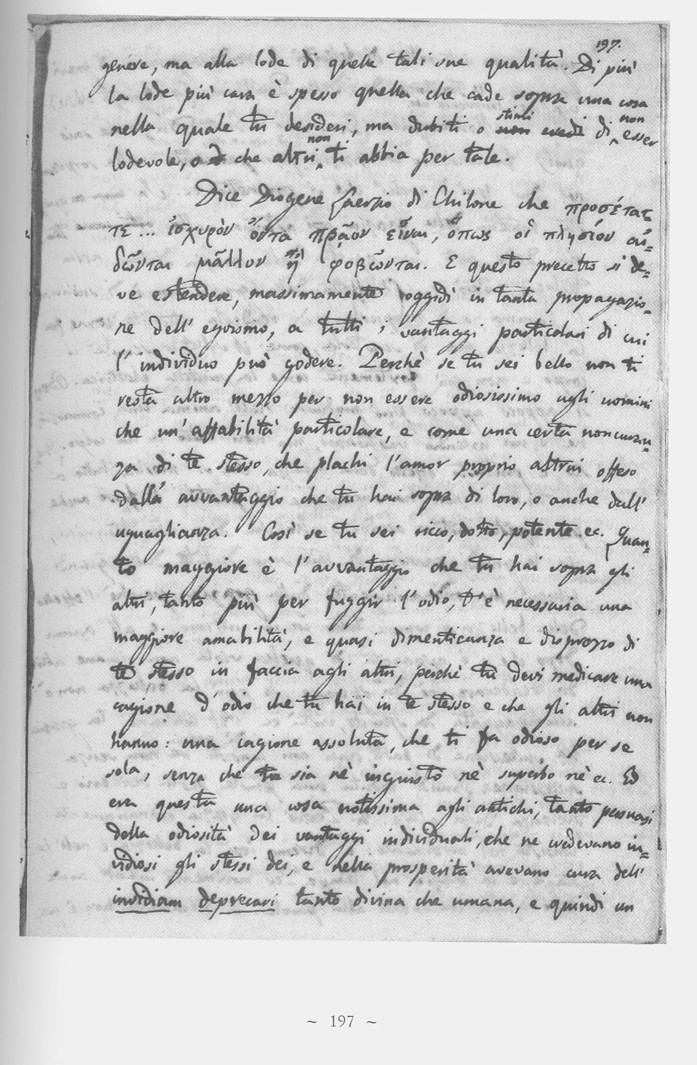 197.
genere, ma alla lode di quelle tali sue qualità. Di più
la lode più cara è spesso quella che cade sopra una cosa
nella quale tu desideri, ma dubiti o stimi di non esser
lodevole, o che altri non ti abbia per tale.
Dice Diogene Laerzio di Chilone che προσέτατ-
τε... ἰσχυρὸν ὄντα πρᾶον εἶναι, ὅπως οἱ πλησίον αἰ-
δῶνται μᾶλλον ἢ φοβῶνται. E questo precetto si de-
ve estendere, massimamente oggidì in tanta propagazio-
ne dell'egoismo, a tutti i vantaggi particolari di cui
l'individuo può godere. Perchè se tu sei bello non ti
resta altro mezzo per non essere odiosissimo agli uomini
che un'affabilità particolare, e come una certa noncuran-
za di te stesso, che plachi l'amor proprio altrui offeso
dall'avvantaggio che tu hai sopra di loro, o anche dall'
uguaglianza. Così se tu sei ricco, dotto, potente ec. Quan-
to maggiore è l'avvantaggio che tu hai sopra gli
altri, tanto più per fuggir l'odio, t'è necessaria una
maggiore amabilità, e quasi dimenticanza e disprezzo di
te stesso in faccia agli altri, perchè tu devi medicare una
cagione d'odio che tu hai in te stesso e che gli altri non
hanno: una cagione assoluta, che ti fa odioso per se
sola, senza che tu sia nè ingiusto nè superbo nè ec. Ed
era questa una cosa notissima agli antichi, tanto persuasi
della odiosità dei vantaggi individuali, che ne credevano in-
vidiosi gli stessi dei, e nella prosperità avevano cura dell'
invidiam deprecari tanto divina che umana, e quindi un
~ 197 ~